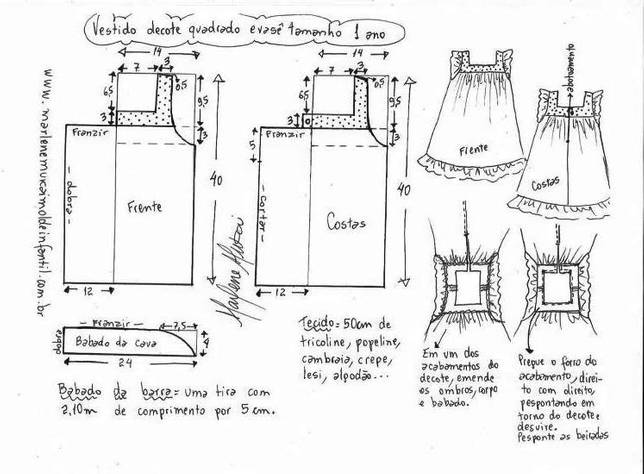 Vestido decote quadrado evasê tamanho 1 ano
www.marlenemukaimoldeinfantil.com.br
14
7
3
6,5
0,5
9,5
3
3
Franzir
dobra
Frente
40
12
Marlene Mukai
14
7
3
6,5
0,5
9,5
3
3
Franzir
5
cortar
Costas
40
12
abotoamento
Frente
Costas
Franzir
7,5
dobra
Babado da cava
4
24
Babado da barra = uma tira com
2,10m de comprimento por 5 cm.
Tecido = 50cm de
tricoline, popeline,
cambraia, crepe,
lesi, algodão...
Em um dos
acabamentos do
decote, emende
os ombros, corpo
e babado.
Pregue o forro do
acabamento, direi-
to com direito,
pespontando em
torno do decote e
desvire.
Pesponte as beiradas